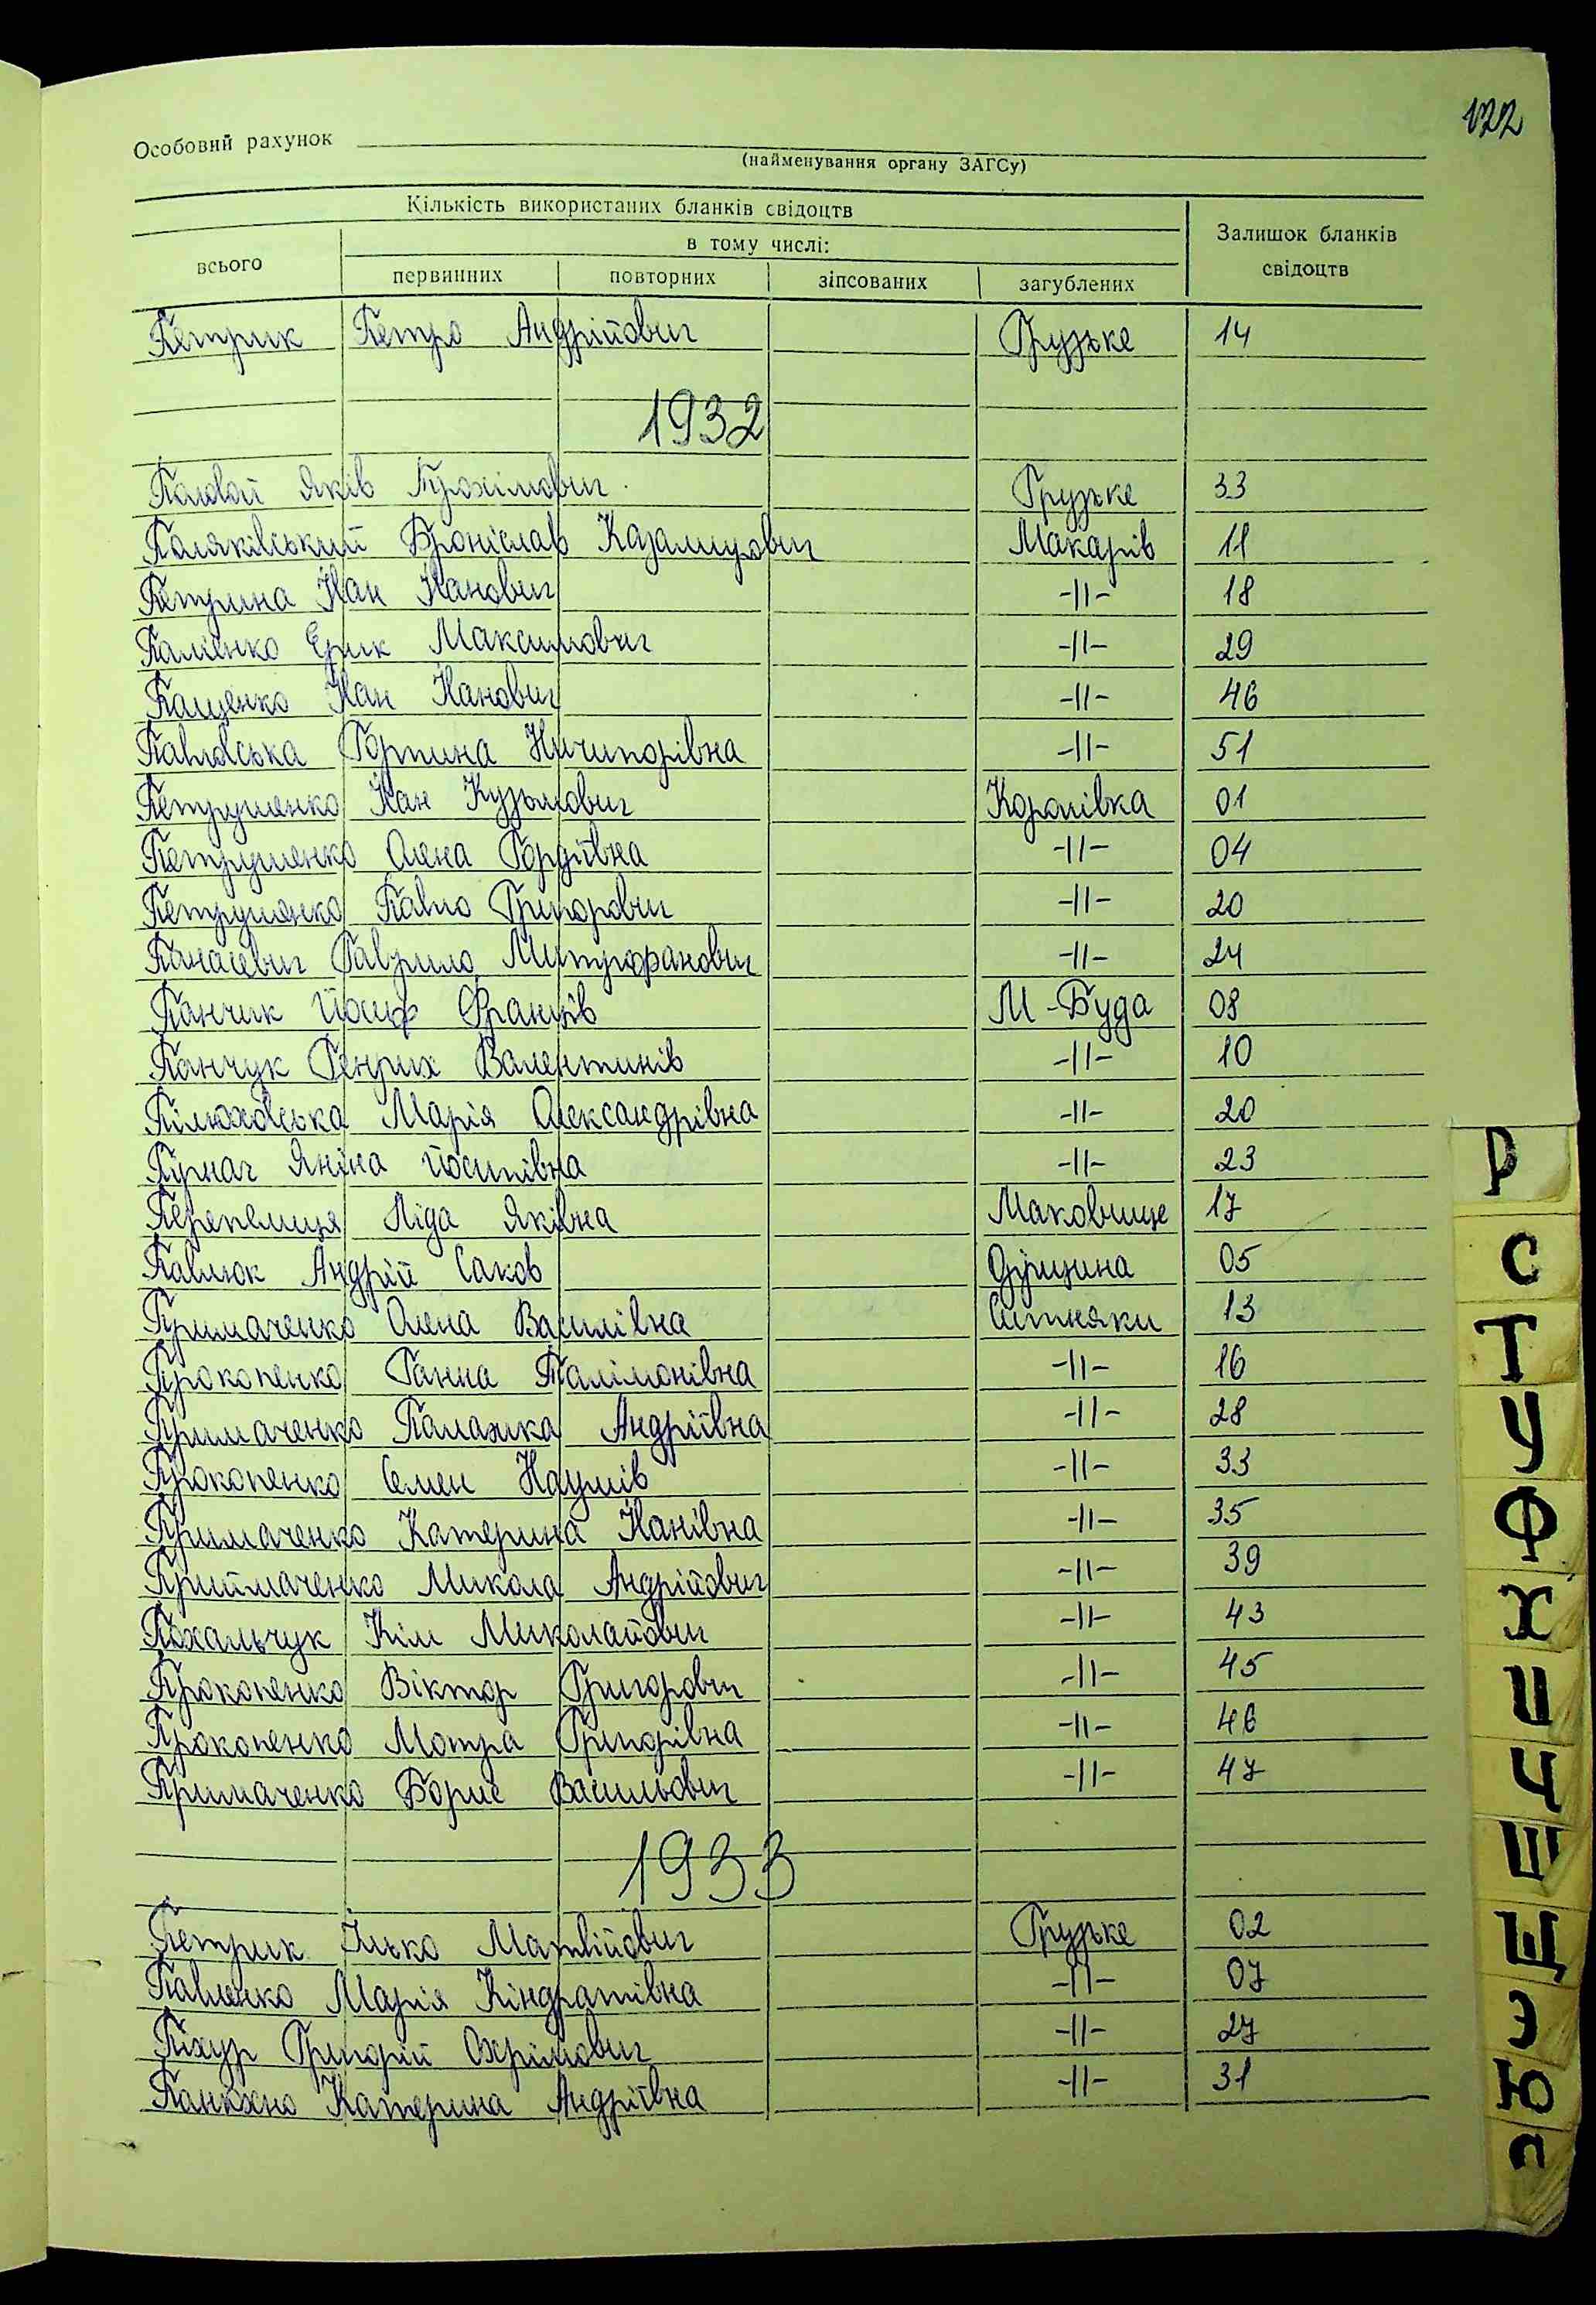 122
Особовий рахунок
(найменування органу ЗАГСу)
Кількість використаних бланків свідоцтв
Залишок бланків свідоцтв
всього
в тому числі:
первинних повторних зіпсованих загублених
Петрик Петро Андрійович Грузьке 14
1932
Яків Грузьке 33
Поляківський Броніслав Казамирович Макарів 11
Петрина Іван Іванович -||- 18
Палієнко Ерик Максимович -||- 29
Пащенко Іван Іванович -||- 46
Павлівська Горпина Ничипорівна -||- 51
Петрушенко Іван Кузьмович Королівка 01
Петрушенко Олена Гордіївна -||- 04
Петрушенко Павло Григорович -||- 20
Панасевич Гаврило Митрофанович -||- 24
Панчик Йосиф Франців М-Буда 08
Панчук Генрих Валентинів -||- 10
Пілюховська Марія Олександрівна -||- 20
Яніна Йосипівна -||- 23
Перепелиця Ліда Яківна Маковище 17
Павлюк Андрій Саков 05
Примаченко Олена Василівна Ситняки 13
Прокопенко Ганна Палімонівна -||- 16
Примаченко Палажка Андріївна -||- 28
Прокопенко Семен Наумів -||- 33
Примаченко Катерина Іванівна -||- 35
Приймаченко Микола Андрійович -||- 39
Похальчук Кім Миколайович -||- 43
Прокопенко Віктор Григорович -||- 45
Прокопенко Мотря Григорівна -||- 46
Примаченко Борис Васильович -||- 47
1933
Петрик Ілько Матвійович Грузьке 02
Павленко Марія Кіндратівна -||- 07
Піхур Григорій Охрімович -||- 27
Катерина Андріївна -||- 31
Р
С
Т
У
Ф
Х
Ц
Ч
Ш
Щ
Э
Ю